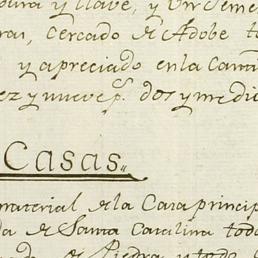 y Llave, y Un
cercado de Adobe
y apreciado en la Can
ez y nueve p.s dos y medi
Casas.
material de la Casa princip
da de Santa Catalina todo
de Piedra y todo